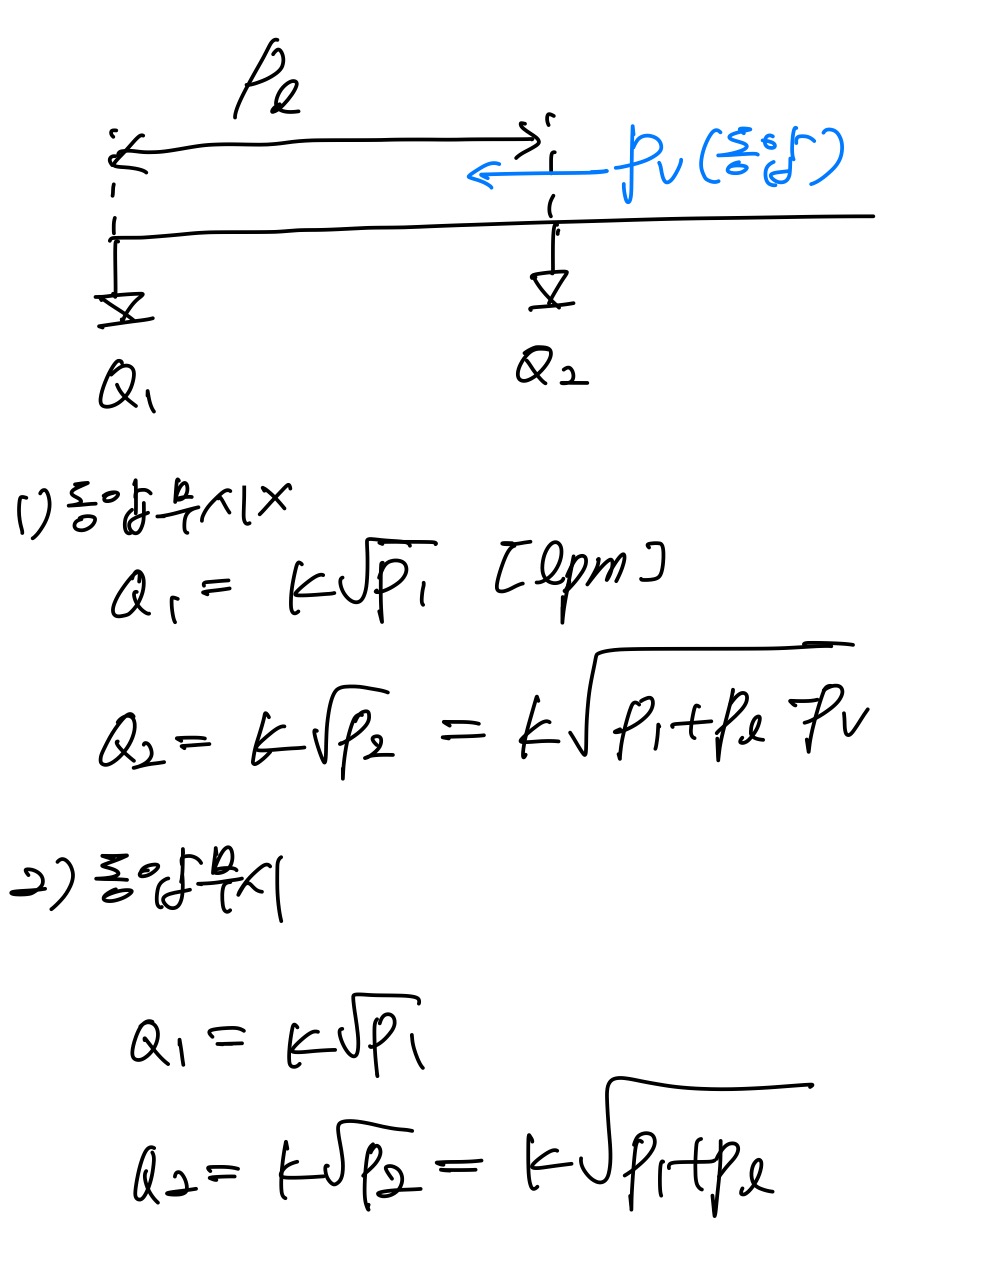 Pℓ
Pv (동압)
Q₁
Q₂
1) 동압무시X
Q₁ = K√P₁ [lpm]
Q₂ = K√P₂ = K√(P₁+Pℓ-Pv)
2) 동압무시
Q₁ = K√P₁
Q₂ = K√P₂ = K√(P₁+Pℓ)